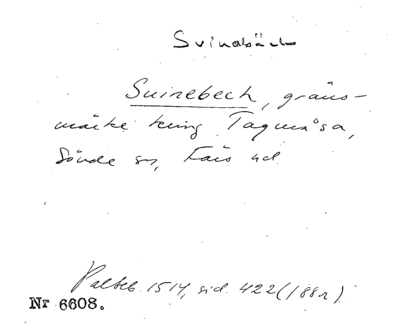 Svinabäck
Svinebech, gräns-
märke kring Tagmåsa,
Sönde sn, Färs hd
Palteb. 1514, sid. 422 (188 r).
Nr 6608.